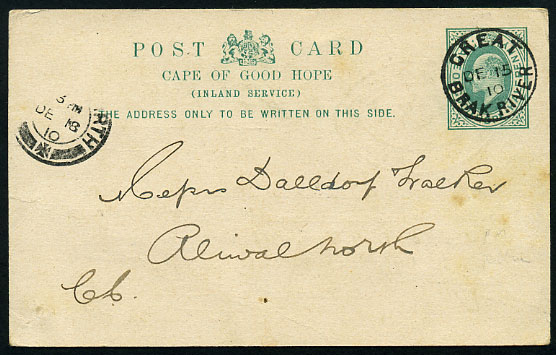 POST CARD
CAPE OF GOOD HOPE
(INLAND SERVICE)
THE ADDRESS ONLY TO BE WRITTEN ON THIS SIDE.
GREAT
DE 15
10
BRAK RIVER
3 PM
DE 18
10
RTH
Messrs Dalldorf Walker
Aliwal North